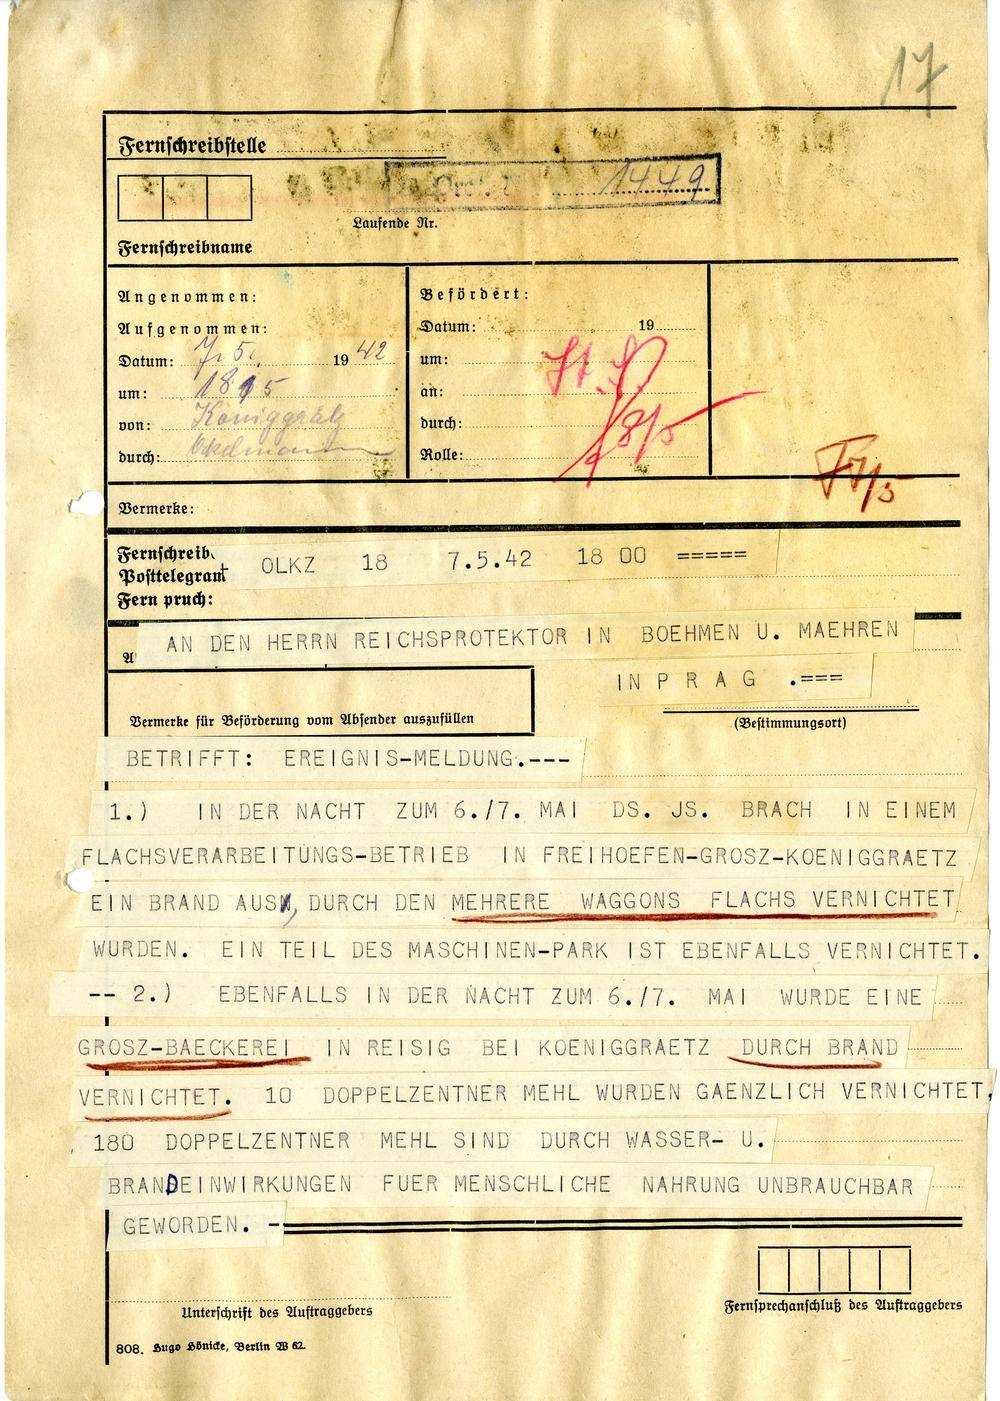 17
Fernschreibstelle
1449
Laufende Nr.
Fernschreibname
Angenommen:
Aufgenommen:
Datum: 7. 5. 1942
um: 1815
von: Königgrätz
durch:
Befördert:
Datum: 19
um:
an:
durch:
Rolle:
St. S.
8/5
F 7/5
Vermerke:
Fernschreib
Posttelegram
Fern pruch:
OLKZ 18 7.5.42 18 00 =====
AN DEN HERRN REICHSPROTEKTOR IN BOEHMEN U. MAEHREN
A
IN P R A G .===
Vermerke für Beförderung vom Absender auszufüllen
(Bestimmungsort)
BETRIFFT: EREIGNIS-MELDUNG.---
1.) IN DER NACHT ZUM 6./7. MAI DS. JS. BRACH IN EINEM
FLACHSVERARBEITUNGS-BETRIEB IN FREIHOEFEN-GROSZ-KOENIGGRAETZ
EIN BRAND AUS, DURCH DEN MEHRERE WAGGONS FLACHS VERNICHTET
WURDEN. EIN TEIL DES MASCHINEN-PARK IST EBENFALLS VERNICHTET.
-- 2.) EBENFALLS IN DER NACHT ZUM 6./7. MAI WURDE EINE
GROSZ-BAECKEREI IN REISIG BEI KOENIGGRAETZ DURCH BRAND
VERNICHTET. 10 DOPPELZENTNER MEHL WURDEN GAENZLICH VERNICHTET,
180 DOPPELZENTNER MEHL SIND DURCH WASSER- U.
BRANDEINWIRKUNGEN FUER MENSCHLICHE NAHRUNG UNBRAUCHBAR
GEWORDEN. -
Unterschrift des Auftraggebers
Fernsprechanschluß des Auftraggebers
808. Hugo Hönicke, Berlin W 62.